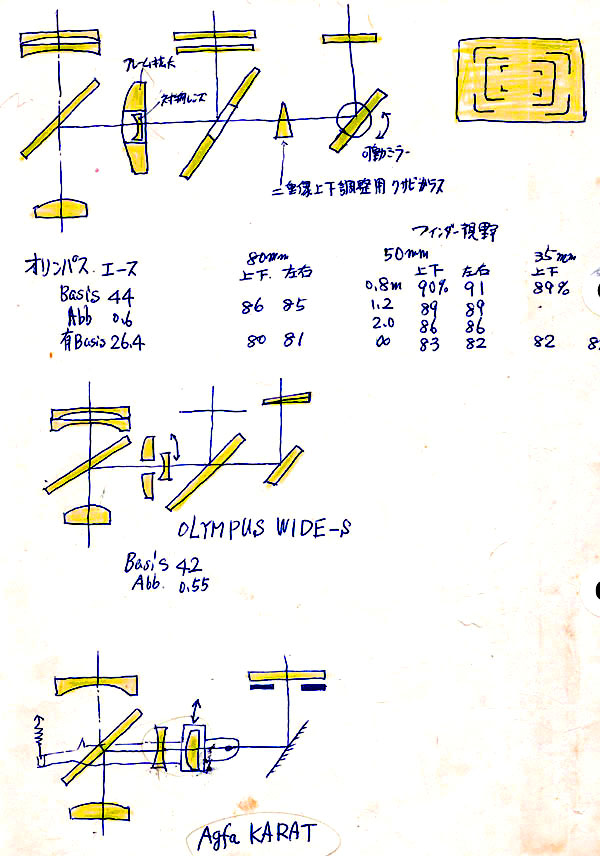 フレーム拡大
対物レンズ
可動ミラー
二重像上下調整用クサビガラス
ファインダー視野
オリンパス エース
80mm
50mm
35mm
上下 左右
上下 左右
上下
Basis 44
0.8m 90% 91 89%
Abb 0.6
86 85
1.2 89 89
2.0 86 86
有Basis 26.4
80 81
∞ 83 82 82
OLYMPUS WIDE-S
Basis 42
Abb. 0.55
Agfa KARAT